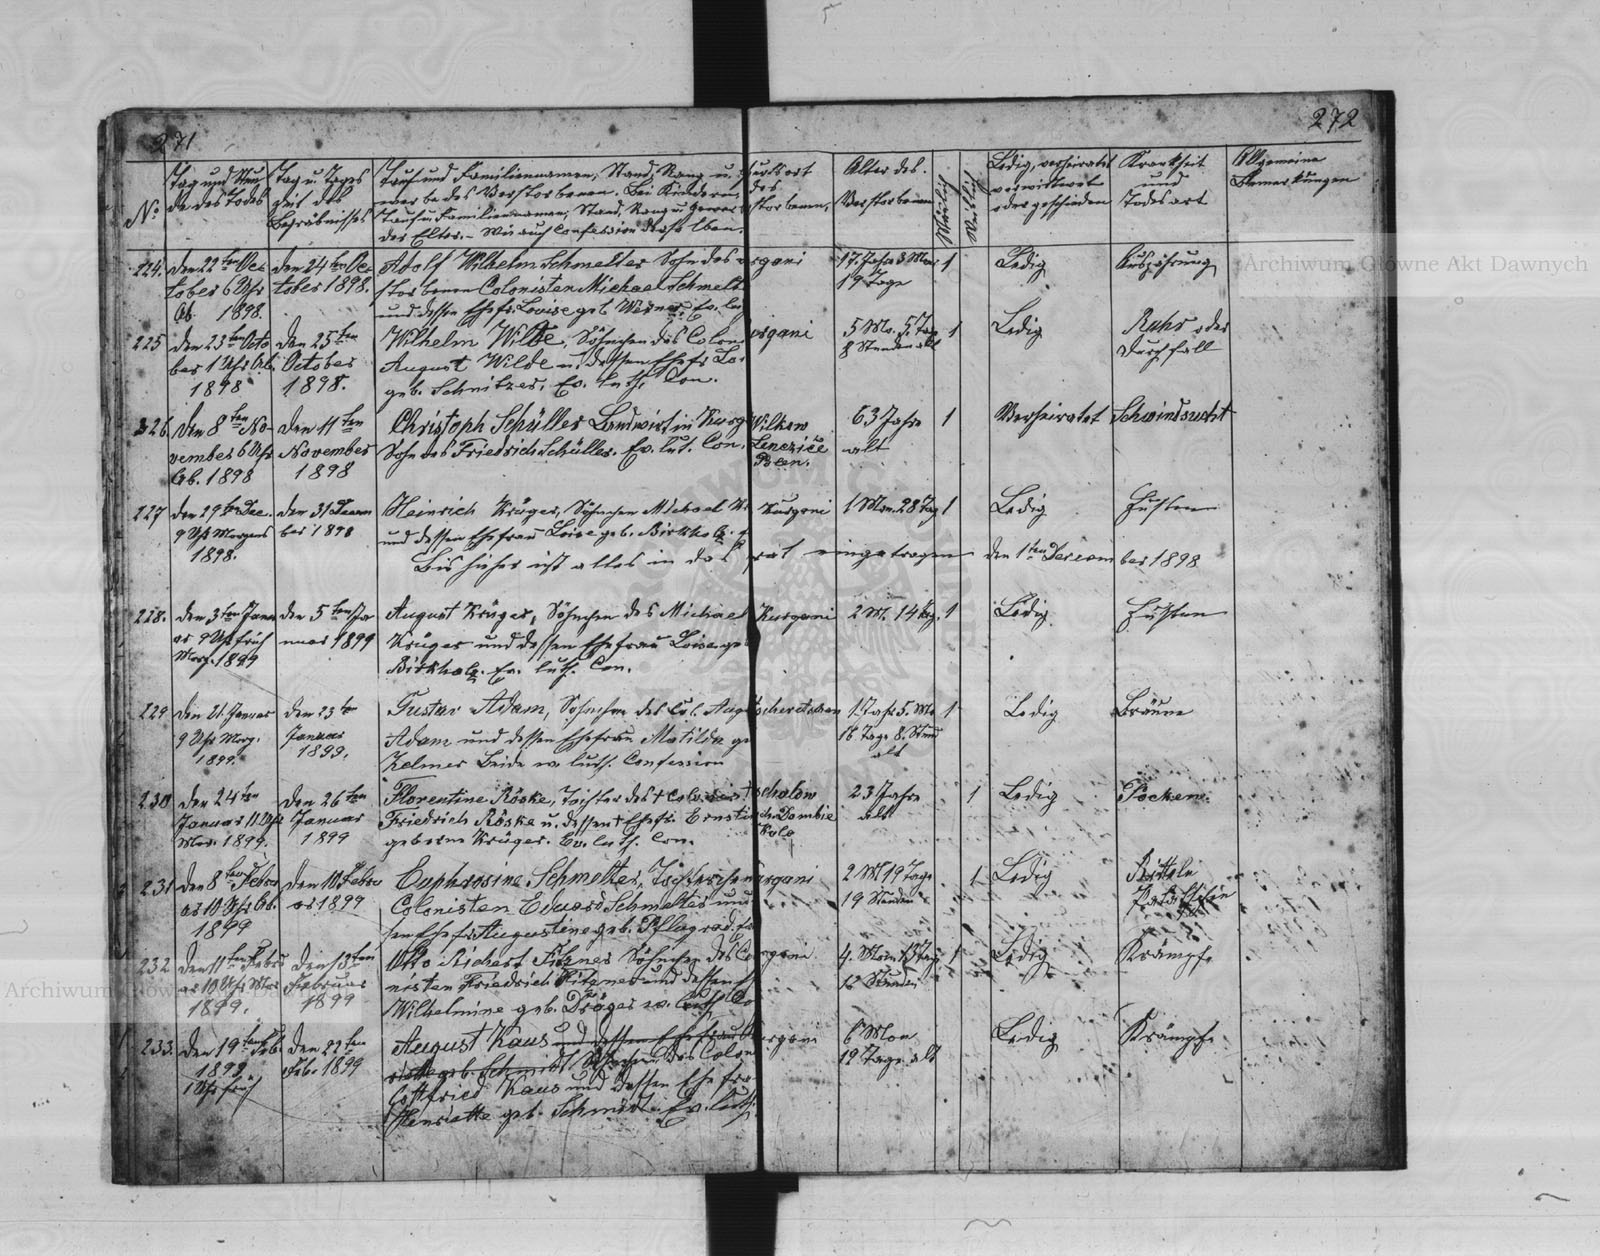 271
272
No
Tag und Stun
de des Todes
Tag u. Tages
zeit des
Begräbnisses
Tauf und Familiennamen, Stand, Rang u.
werbe des Verstorbenen. Bei Kindern,
Tauf u. Familiennamen, Stand, Rang u. Gewer
der Elter. - Wie auch Confession derselben.
burtsort
des
storbenen,
Alter des
Verstorbenen
Ledig, verheiratet
verwittwet
oder geschieden
Krankheit
und
Todesart
Allgemeine
Bemerkungen
224. den 22ten Oc
tober 6 Uhr
Ab. 1898.
den 24ten Oc
tober 1898.
Adolf Wilhelm Schmelter Sohn des
storbenen Colonisten Michael Schmelt
und dessen Ehefr. Lovise geb. Werner, Ev. lu
rgani
17 Jahr 3 Mon.
19 Tage
1
Ledig
Auszehrung
225 den 23ten Octo
ber 1 Uhr Ab.
1898
den 25ten
October
1898.
Wilhelm Wilde, Söhnchen des Coloni
August Wilde u. dessen Ehefr. Lo
geb. Schnitzer, Ev. luth. Con.
urgani
5 Mo. 5. Tag
8 Stunden alt
1
Ledig
Ruhr oder
Durchfall
226 den 8ten No-
vember 6 Uhr
Ab. 1898
den 11ten
November
1898
Christoph Schüller Landwirt in Kurg
Sohn des Friedrich Schüller. Ev. lut. Con.
Wilkow
63 Jahre
alt
1
Verheiratet
Schwindsucht
227 den 29ten Dec.
9 Uhr Morgens
1898.
den 31 Decem
ber 1898
Heinrich Krüger, Söhnchen Michael Kr
und dessen Ehefrau Loise geb. Birkholz.
Kurgani
1 Mon. 28 Tag
1
Ledig
Husten
Bis hieher ist alles in das
rat eingetragen den 1ten December 1898
228. den 3ten Janu
ar 9 Uhr früh
Morg. 1899
den 5ten Ja
nuar 1899
August Krüger, Söhnchen des Michael
Krüger und dessen Ehefrau Loise geb
Birkholz. Ev. luth. Con.
Kurgani
2 M. 14 Tag.
1
Ledig
Husten
229 den 21 Januar
9 Uhr Morg.
1899.
den 23ten
Januar
1899.
Gustav Adam, Söhnchen des Col. Aug
Adam und dessen Ehefrau Matilda ge
Kelmer Beide ev. luth. Confession
1. Jahr 5. Mo
16 Tage 8. Stund
alt
1
Ledig
Bräune
230 den 24ten
Januar 11 Uhr
Mor. 1899.
den 26ten
Januar
1899
Florentine Röske, Tochter des † Colonist
Friedrich Röske u. dessen † Ehefr. Ernstin
geborne Krüger. Ev. luth. Con.
Dombie
Kolo
23 Jahre
alt
1
Ledig
Pocken.
231 den 8ten Febru
ar 10 Uhr Ab.
1899
den 10 Febru
ar 1899
Euphrosine Schmelter, Töchterchen
Colonisten Eduard Schmelter und
sen Ehefr. Augustine geb. Pflugrad.
urgani
2 M 19 Tage
19 Stunden
1
Ledig
232 den 11ten Febru
ar 10 Uhr Mor
1899.
den 13ten
Februar
1899
Otto Richert Fitzner Söhnchen des Co
nisten Friedrich Fitzner und dessen
Wilhelmine geb. Dräger ev. luth. Co
rgani
4. Mon. 13 Tag
12 Stunden
1
Ledig
Krämpfe
233. den 19ten Feb
1899
1 Uhr früh
den 22ten
Feb. 1899
August Kaus und dessen Ehefrau
riette geb. Schmidt Söhnchen des Colon
Gottfried Kaus und dessen Ehefra
Henriette geb. Schmidt. Ev. luth.
urgani
6 Mon
12 Tage alt
Ledig
Krämpfe
Archiwum Główne Akt Dawnych
Archiwum Główne Akt Dawnych